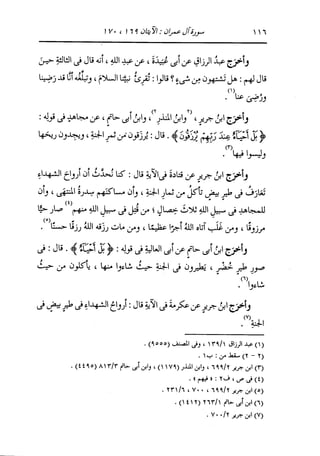 ١١٦ سورة آل عمران : الآيتان ١٦٩ ، ١٧٠
وأخرج عبدُ الرزاقِ عن أبى عُبَيدةَ ، عن عبدِ اللهِ ، أنه قال فى الثالثةِ حينَ
قال لهم : هل تَشْتهون مِن شىءٍ ؟ قالوا : تُقرِئُ نبيَّنا السلامَ ، وتبلِّغُه أنَّا قد رَضِينا
ورُضِىَ عنا(١) .
وأخرَج ابنُ جريرٍ ، (٢وابنُ المنذرِ٢) ، وابنُ أبى حاتمٍ ، عن مجاهدٍ فى قولِه :
﴿ بَلْ أَحْيَآءٌ عِندَ رَبِّهِمْ يُرْزَقُونَ ﴾ . قال : يُرزَقون مِن ثمرِ الجنةِ ، ويجِدون ريحَها
وليسوا فيها(٣) .
وأخرَج ابنُ جريرٍ عن قتادةَ فى الآيةِ قال : كنا نُحدَّثُ أن أرواحَ الشهداءِ
تعارَفُ فى طيرٍ بيضٍ تأكلُ مِن ثمارِ الجنةِ ، وأن مساكنَهم سِدرةُ المنتهَى ، وأن
للمجاهدِ فى سبيلِ اللهِ ثلاثَ خِصالٍ ؛ مَن قُتِل فى سبيلِ اللهِ منهم(٤) صار حيًّا
مرزوقًا ، ومَن غلَب آتاه اللهُ أجرًا عظيمًا ، ومَن مات رزَقه اللهُ رزقًا حسنًا(٥) .
وأخرَج ابنُ أبى حاتمٍ عن أبى العاليةِ فى قولِه : ﴿ بَلْ أَحْيَآءٌ ﴾ . قال : فى
صورِ طيرٍ خُضْرٍ ، يَطيرون فى الجنةِ حيثُ شاءوا منها ، يأكلون مِن حيثُ
شاءوا(٦) .
وأخرَج ابنُ جريرٍ عن عكرمةَ فى الآيةِ قال : أرواحُ الشهداءِ فى طيرٍ بيضٍ فى
الجنةِ(٧) .
(١) عبد الرزاق ١٣٩/١ ، وفى المصنف (٩٥٥٥) .
(٢ - ٢) سقط من : ب ١ .
(٣) ابن جرير ٦٩٩/٢ ، وابن المنذر (١١٧٩) ، وابن أبى حاتم ٨١٣/٣ (٤٤٩٥) .
(٤) فى ص ، ف ٢ : « فيهم » .
(٥) ابن جرير ٦٩٩/٢ ، ٧٠٠ ، ٢٣١/٦ .
(٦) ابن أبى حاتم ٢٦٣/١ (١٤١٢) .
(٧) ابن جرير ٧٠٠/٢ .